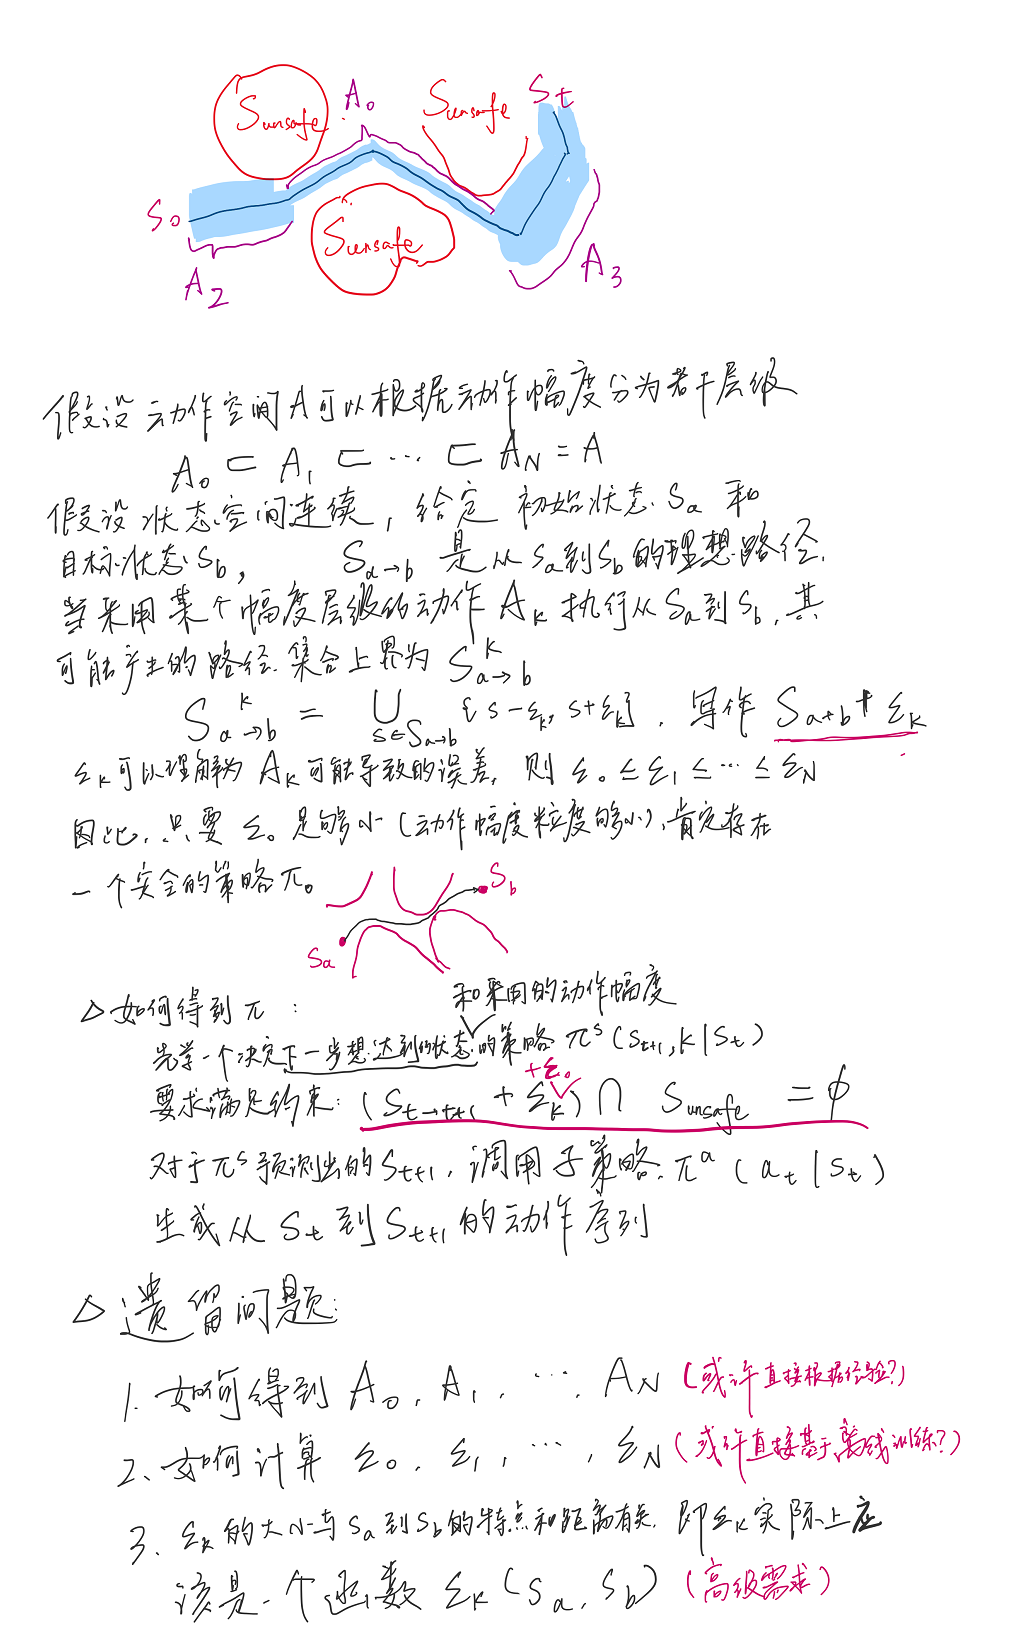 A₀
Sunsafe
Sunsafe
St
S₀
Sunsafe
A₂
A₃
假设动作空间A可以根据动作幅度分为若干层级
A₀ ⊂ A₁ ⊂ ⋯ ⊂ A_N = A
假设状态空间连续，给定 初始状态 Sa 和
目标状态 Sb， S_{a→b} 是从Sa到Sb的理想路径.
当采用某个幅度层级的动作 A_k 执行从Sa到Sb，其
可能产生的路径集合上界为 S^k_{a→b}
S^k_{a→b} = ∪_{s∈S_{a→b}} {s-ε_k, s+ε_k}. 写作 S_{a→b}+ε_k
ε_k可以理解为 A_k可能导致的误差, 则 ε₀ ≤ ε₁ ≤ ⋯ ≤ ε_N
因此, 只要 ε₀ 足够小 (动作幅度粒度够小), 肯定存在
一个安全的策略π。
Sb
Sa
和采用的动作幅度
△ 如何得到 π :
先学一个决定下一步想达到的状态的策略 π^s (S_{t+1}, k | S_t)
+ε₀
要求满足约束: (S_{t→t+1} + ε_k) ∩ Sunsafe = ϕ
对于π^s预测出的S_{t+1}, 调用子策略 π^a (a_t | S_t)
生成从 S_t 到 S_{t+1} 的动作序列
△ 遗留问题:
1. 如何得到 A₀, A₁, ⋯, A_N (或许直接根据经验?)
2. 如何计算 ε₀, ε₁, ⋯, ε_N (或许直接基于离线训练?)
3. ε_k的大小与Sa到Sb的特点和距离有关, 即ε_k实际上应
该是一个函数 ε_k (Sa, Sb) (高级需求)